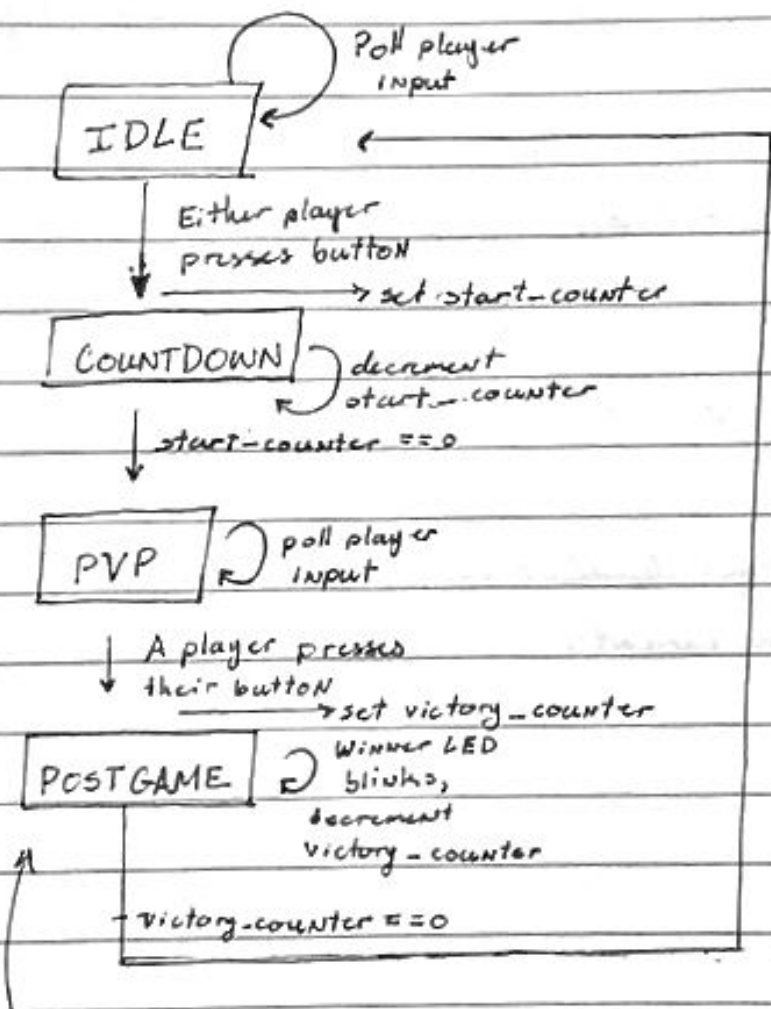 Poll player
input
IDLE
Either player
presses button
set start_counter
COUNTDOWN
decrement
start_counter
start-counter == 0
PVP
poll player
input
A player presses
their button
set victory_counter
POSTGAME
Winner LED
blinks,
decrement
victory_counter
victory-counter == 0